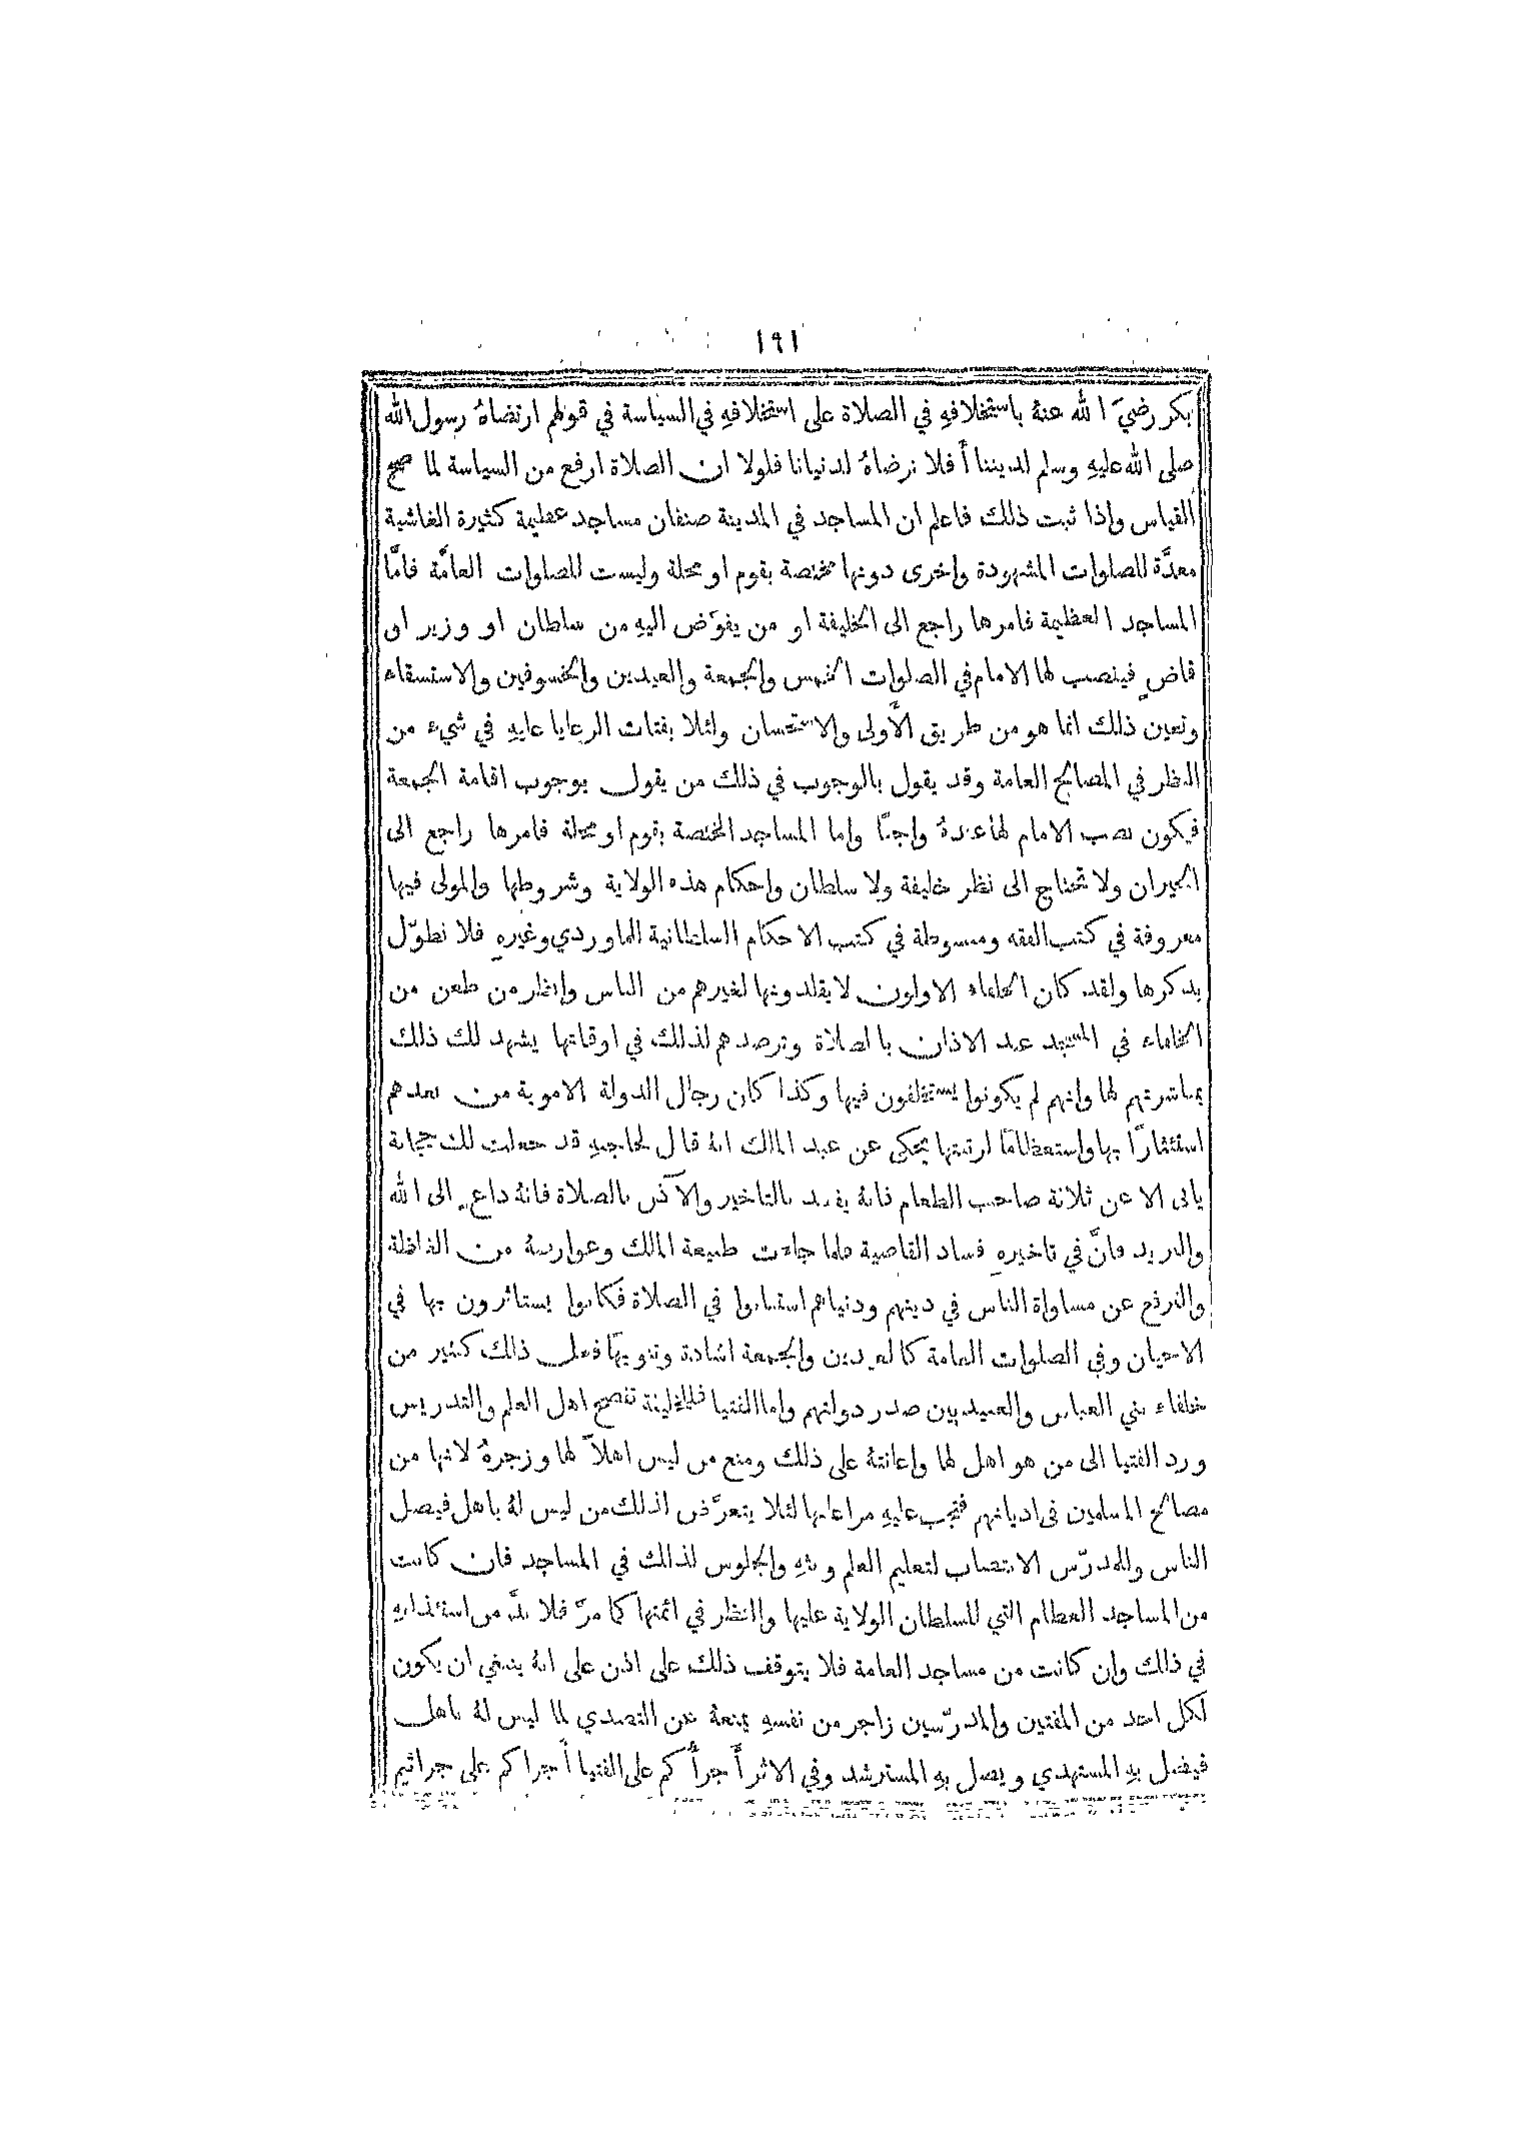 ١٩١
بكر رضيَ الله عنهُ باستخلافهِ في الصلاة على استخلافهِ في السياسة في قولهم ارتضاهُ رسول الله
صلى الله عليهِ وسلم لديننا أَفلا نرضاهُ لدنيانا فلولا ان الصلاة ارفع من السياسة لما صحَّ
القياس وإذا ثبت ذلك فاعلم ان المساجد في المدينة صنفان مساجد عظيمة كثيرة الغاشية
معدَّة للصلوات المشهودة واخرى دونها مختصة بقوم او محلة وليست للصلوات العامَّة فامَّا
المساجد العظيمة فامرها راجع الى الخليفة او من يفوّض اليهِ من سلطان او وزير او
قاضٍ فينصب لها الامام في الصلوات الخمس والجمعة والعيدين والخسوفين والاستسقاء
وتعين ذلك انما هو من طريق الأَولى والاستحسان ولئلا يفتات الرعايا عليهِ في شيءٍ من
النظر في المصالح العامة وقد يقول بالوجوب في ذلك من يقول بوجوب اقامة الجمعة
فيكون نصب الامام لها عندهُ واجبًا واما المساجد المختصة بقوم او محلة فامرها راجع الى
الجيران ولا تحتاج الى نظر خليفة ولا سلطان واحكام هذه الولاية وشروطها والمولى فيها
معروفة في كتب الفقه ومبسوطة في كتب الاحكام السلطانية للماوردي وغيرهِ فلا نطوّل
بذكرها ولقد كان الخلفاء الاولون لا يقلدونها لغيرهم من الناس وانظر من طعن من
الخلفاء في المسجد عند الاذان بالصلاة وترصدهم لذلك في اوقاتها يشهد لك ذلك
بمباشرتهم لها وانهم لم يكونوا يستخلفون فيها وكذا كان رجال الدولة الاموية من بعدهم
استئثارًا بها واستعظامًا لرتبتها يحكى عن عبد الملك انهُ قال لحاجبهِ قد جعلت لك حجابة
بابي الا عن ثلاثة صاحب الطعام فانهُ يفسد بالتاخير والآذن بالصلاة فانهُ داعٍ الى الله
والبريد فانَّ في تاخيرهِ فساد القاصية فلما جاءت طبيعة الملك وعوارضهُ من الغلظة
والترفع عن مساواة الناس في دينهم ودنياهم استنابوا في الصلاة فكانوا يستاثرون بها في
الاحيان وفي الصلوات العامة كالعيدين والجمعة اشادة وتنويهًا فعل ذلك كثير من
خلفاء بني العباس والعبيديين صدر دولتهم واما الفتيا فللخليفة تفصح اهل العلم والتدريس
ورد الفتيا الى من هو اهل لها واعانتهُ على ذلك ومنع من ليس اهلاً لها وزجرهُ لانها من
مصالح المسلمين في اديانهم فتجب عليهِ مراعاتها لئلا يتعرَّض لذلك من ليس لهُ باهل فيضل
الناس وللمدرّس الانتصاب لتعليم العلم وبثهِ والجلوس لذلك في المساجد فان كانت
من المساجد العظام التي للسلطان الولاية عليها والنظر في ائمتها كما مرَّ فلا بدَّ من استئذانهِ
في ذلك وإن كانت من مساجد العامة فلا يتوقف ذلك على اذن على انهُ ينبغي ان يكون
لكل احد من المفتين والمدرّسين زاجر من نفسهِ يمنعهُ عن التصدي لما ليس لهُ باهل
فيضل بهِ المستهدي ويضل بهِ المسترشد وفي الاثر أَجرأُكم على الفتيا أَجراكم على جراثيم